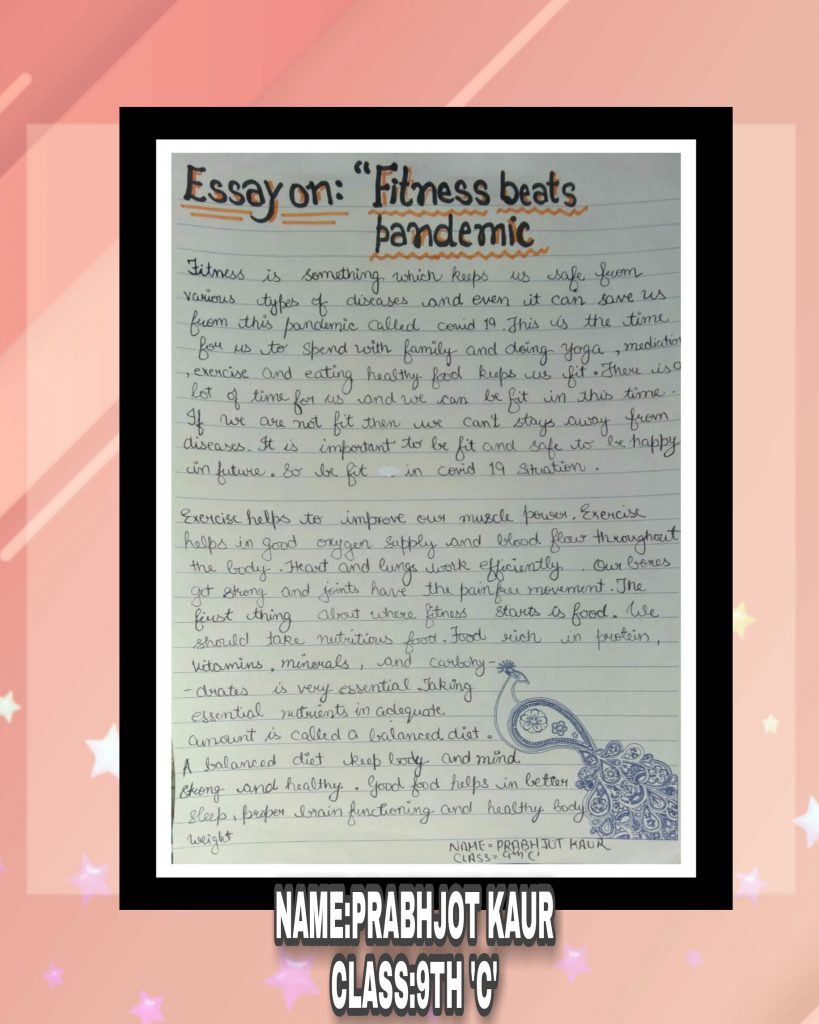 Essay on: "Fitness beats
pandemic
Fitness is something which keeps us safe from
various types of diseases and even it can save us
from this pandemic called covid 19. This is the time
for us to spend with family and doing yoga, medication
, exercise and eating healthy food keeps us fit. There is a
lot of time for us and we can be fit in this time.
If we are not fit then we can't stays away from
diseases. It is important to be fit and safe to be happy
in future. So be fit in covid 19 situation.
Exercise helps to improve our muscle power. Exercise
helps in good oxygen supply and blood flow throughout
the body. Heart and lungs work efficiently. Our bones
get strong and joints have the painfree movement. The
first thing about where fitness starts is food. We
should take nutritious food. Food rich in protein,
vitamins, minerals, and carbohy-
-drates is very essential. Taking
essential nutrients in adequate
amount is called a balanced diet.
A balanced diet keep body and mind
strong and healthy. Good food helps in better
sleep, proper brain functioning and healthy body
weight
NAME = PRABHJOT KAUR
CLASS = 9th 'C'
NAME:PRABHJOT KAUR
CLASS:9TH 'C'